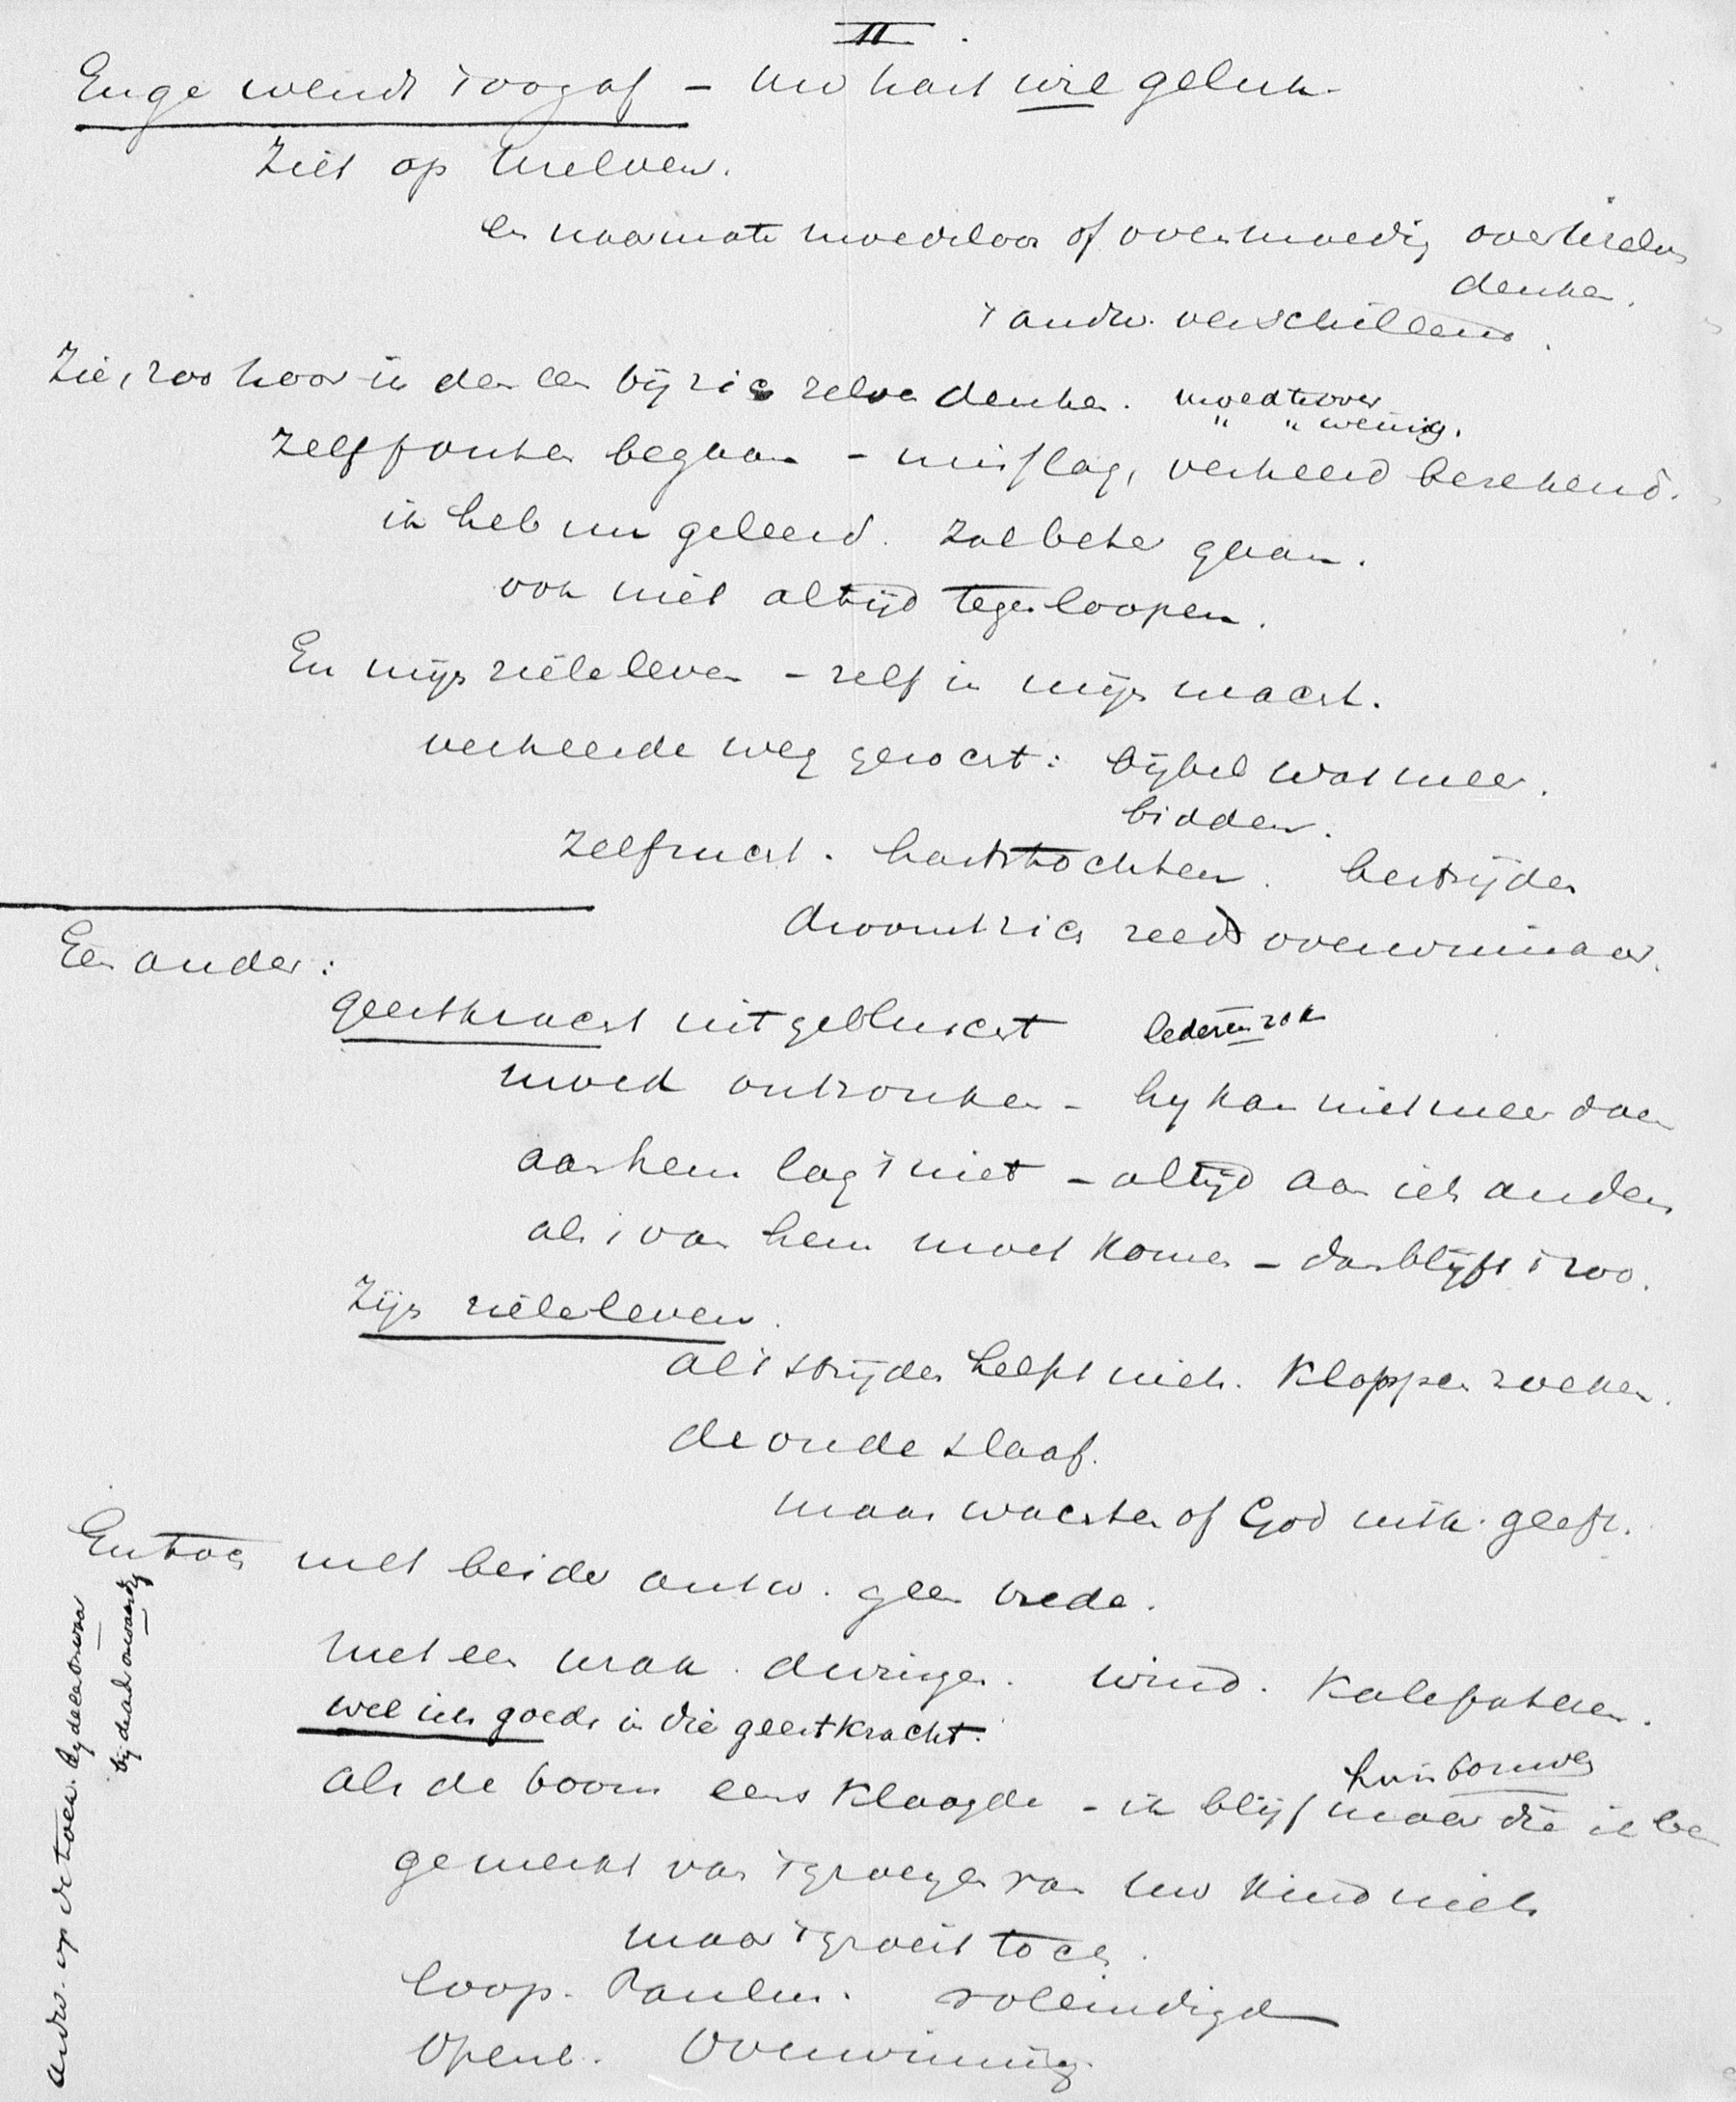 II.
Enge wendt 't oog af - Uw hart wil geluk.
Ziet op Uzelven.
en naarmate moedeloos of overmoedig
denken.
't andw. verschillend.
Zie, zoo hoor ik den een bij zich zelve denken. moed te over
" " weinig.
Zelf fouten begaan - misslag, verkeerd berekend.
ik heb nu geleerd. Zal beter gaan.
ook niet altijd tegenloopen.
En mijn zieleleven - zelf in mijn macht.
verkeerde weg gezocht: bijbel wat meer.
bidden.
Zelfzucht. hartstochten. bestrijden
droomt zich reeds overwinnaar.
Een ander:
geestkracht uitgebluscht lederen zak
moed ontzonken - hy kan niet meer doen
aan hem lag 't niet - altijd aan iets anders
als 't van hem moet komen - dan blijft 't zoo.
Zijn zieleleven.
al 't strijden helpt niets. Kloppen zoeken.
de oude slaaf.
maar wachten of God uitk. geeft.
En toch met beide antw. geen vrede.
met een wrak. dwingen. wind. Kalefateren.
wel iets goeds in die geestkracht.
huis bouwen
als de boom eens klaagde - ik blijf maar die ik ben
gemerkt van 't groeien van Uw kind niets
maar 't groeit toch.
loop. Paulus. voleindigd
Openb. Overwinning.
andw. op de toek. by de een waa